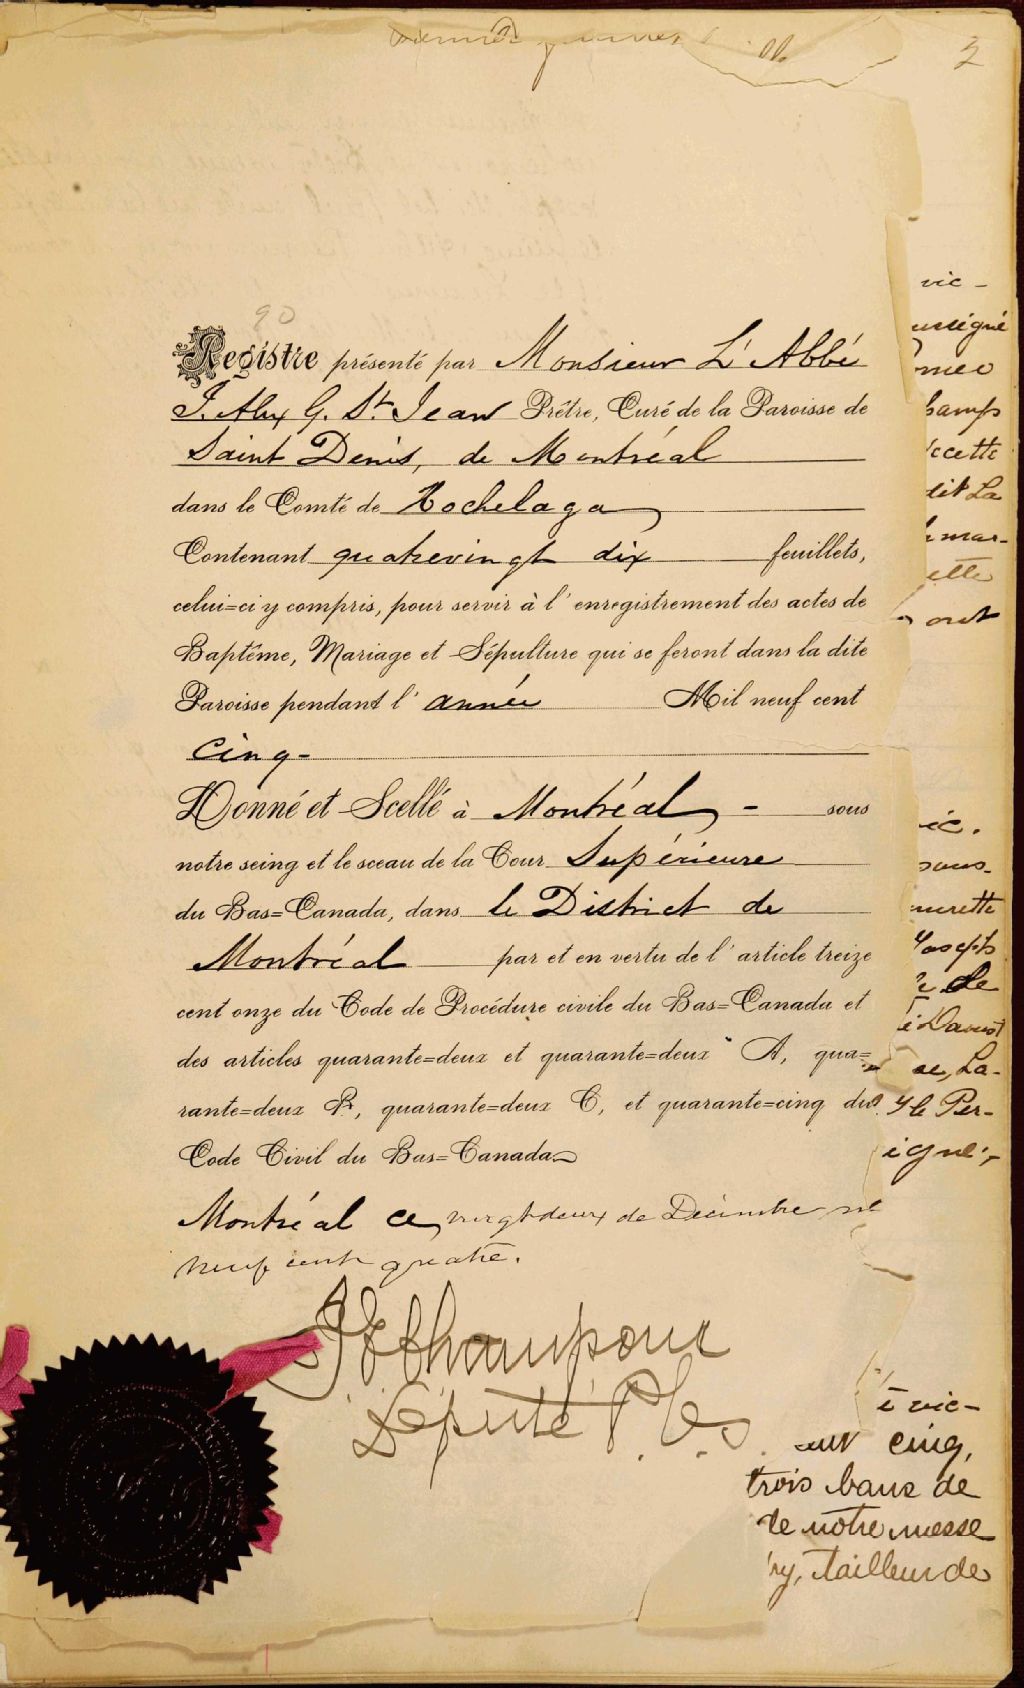 2
90
Registre présenté par Monsieur L'Abbé
J. Alex G. St Jean Prêtre, Curé de la Paroisse de
Saint Denis, de Montréal
dans le Comté de Hochelaga
Contenant quatrevingt dix feuillets,
celui=ci y compris, pour servir à l'enregistrement des actes de
Baptême, Mariage et Sépulture qui se feront dans la dite
Paroisse pendant l'année Mil neuf cent
cinq-
Donné et Scellé à Montréal - sous
notre seing et le sceau de la Cour Supérieure
du Bas=Canada, dans le District de
Montréal par et en vertu de l'article treize
cent onze du Code de Procédure civile du Bas=Canada et
des articles quarante=deux et quarante=deux A, qua=
rante=deux B, quarante=deux C, et quarante=cinq du
Code Civil du Bas=Canada
Montréal ce vingt deux de Décembre mil
neuf cent quatre.
Député P. C. S.
vic-
ussigné
hamps
cette
dit La
mar-
ette
ont
ic.
sous-
Joseph
de
Daoust
se, La-
Per-
igné;-
vic-
cinq,
trois bans de
de notre messe
ry, tailleur de